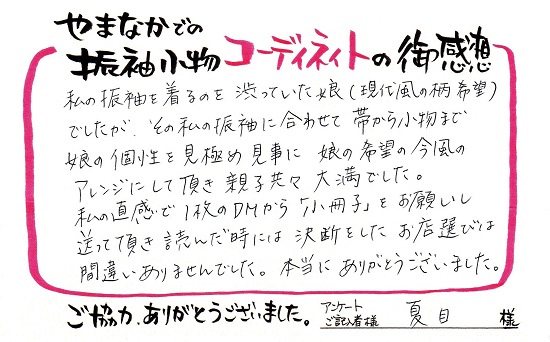 やまなかでの
振袖小物コーディネイトの御感想
私の振袖を着るのを渋っていた娘(現代風の柄希望)
でしたが、その私の振袖に合わせて帯から小物まで
娘の個性を見極め見事に娘の希望の今風の
アレンジにして頂き親子共々大満でした。
私の直感で1枚のDMから「小冊子」をお願いし
送って頂き読んだ時には決断をしたお店選びは
間違いありませんでした。本当にありがとうございました。
ご協力、ありがとうございました。
アンケート
ご記入者様 夏目 様